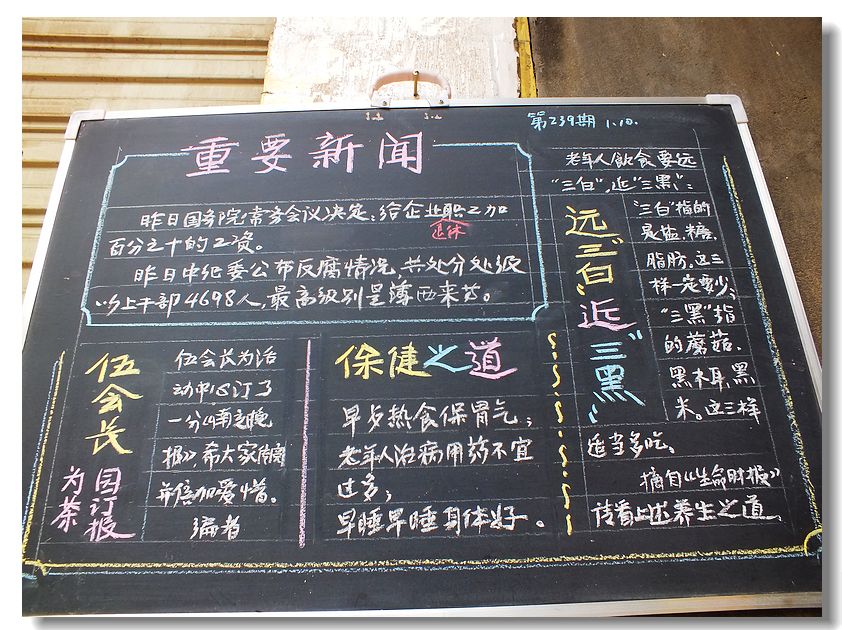 第239期 1.10.
重要新闻
昨日国务院常务会议决定:给企业职工加
退休
百分之十的工资。
昨日中纪委公布反腐情况,共处分处级
以上干部4698人,最高级别是薄西来等。
老年人飲食要远
"三白",近"三黑":
远"三白"近"三黑"
"三白"指的
是盐,糖,
脂肪,这三
样一定要少;
"三黑"指
的蘑菇、
黑木耳,黑
米。这三样
适当多吃。
摘自《生命时报》
请看上述养生之道
伍会长
为茶园订报
伍会长为活
动中心订了
一分《岭南晚
报》,希大家传阅
并倍加爱惜。
编者
保健之道
早步热食保胃气;
老年人治病用药不宜
过多;
早睡早睡身体好。